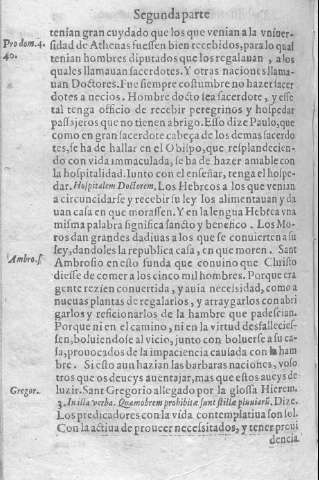 Segunda parte
tenían gran cuydado que los que venian a la vniuer-
Pro dom. 4. sidad de Athenas fuessen bien recebidos, para lo qual
40. tenian hombres diputados que los regalauan, a los
quales llamauan sacerdotes. Y otras naciones llama-
uan Doctores. Fue siempre costumbre no hazer sacer
dotes a necios. Hombre docto sea sacerdote, y esse
tal tenga officio de recebir peregrinos y hospedar
passajeros que no tienen abrigo. Esso dize Paulo, que
como en gran sacerdote cabeça de los demas sacerdo
tes, se ha de hallar en el Obispo, que resplandecien-
do con vida immaculada, se ha de hazer amable con
la hospitalidad. Iunto con el enseñar, tenga el hospe-
dar. Hospitalem Doctorem. Los Hebreos a los que venian
a circuncidarse y recebir su ley los alimentauan y da
uan casa en que morassen. Y en la lengua Hebrea vna
misma palabra significa sancto y benefico. Los Mo-
ros dan grandes dadiuas a los que se conuierten a su
ley, dandoles la republica casa, en que moren. Sant
Ambros. s. Ambrosio en esto funda que conuino que Christo
diesse de comer a los cinco mil hombres. Porque era
gente rezien conuertida, y auia necessidad, como a
nueuas plantas de regalarlos, y arraygarlos con abri
garlos y reficionarlos de la hambre que padescian.
Porque ni en el camino, ni en la virtud desfallecies-
sen, boluiendose al vicio, junto con boluerse a su ca-
sa, prouocados de la impaciencia causada con la ham
bre. Si esto aun hazian las barbaras naciones, voso
tros que os deueys auentajar, mas que estos aueys de
Gregor. luzir. Sant Gregorio allegado por la glossa Hierem.
3. In illa verba. Quamobrem prohibitæ sunt stillæ pluuiarũ. Dize.
Los predicadores con la vida contemplatiua son sol.
Con la actiua de proueer necessitados, y tener proui
dencia